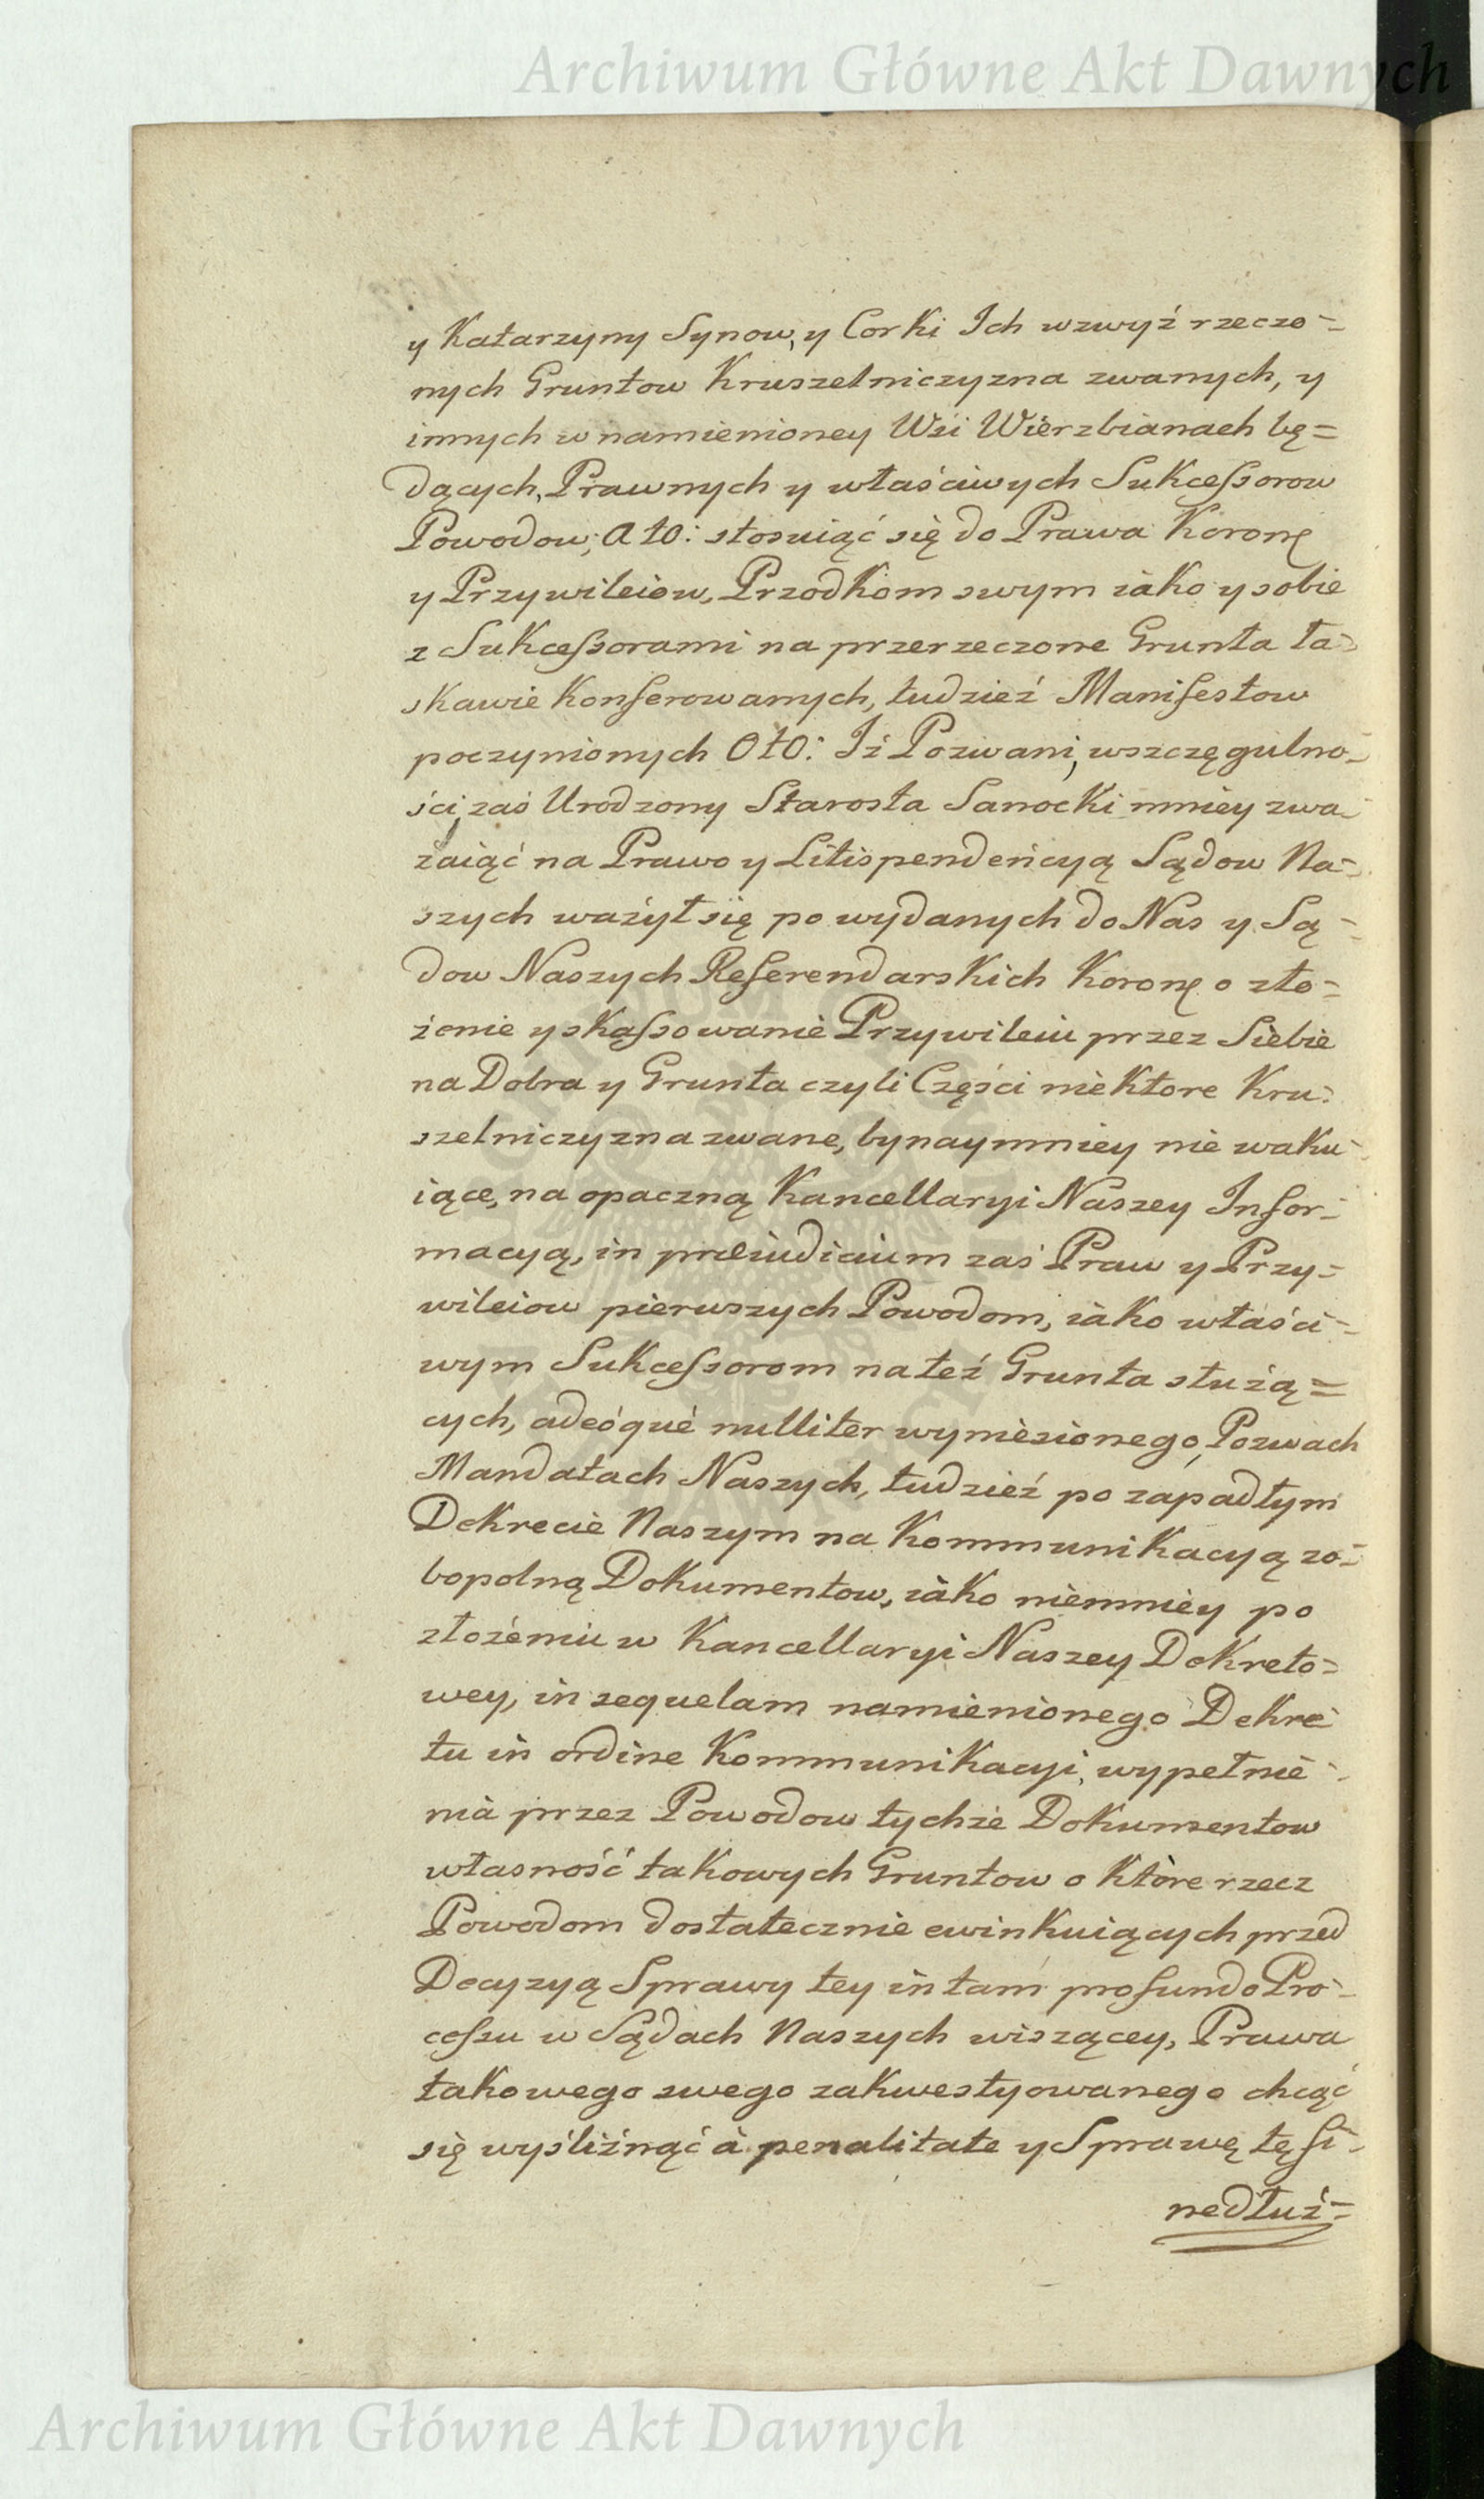 Archiwum Główne Akt Dawnych
y Katarzyny Synow, y Corki Ich wzwyż rzeczo-
nych Gruntow Kruszelniczyzna zwanych, y
innych w namienioney Wsi Wierzbianach bę=
dących, Prawnych y właściwych Sukcessorow
Powodow; a to: stosuiąć się do Prawa Koronę
y Przywileiow, Przodkom swym iako y sobie
z Sukcessorami na przerzeczone Grunta ła-
skawie Konferowanych, tudzież Manifestow
poczynionych Oto: Iż Pozwani, wszczęgulno-
ści, zaś Urodzony Starosta Sanocki mniey zwa-
żaiąć na Prawo y Litispendeńcyą Sądow Na-
szych ważył się po wydanych do Nas y Są-
dow Naszych Referendarskich Koronę o zło=
żenie y skassowanie Przywileiu przez Siebie
na Dobra y Grunta czyli Części nieKtore Kru-
szelniczyzna zwane, bynaymniey nie waku-
iące, na opaczną Kancellaryi Naszey Infor-
macyą, in præiudicium zaś Praw y Przy-
wileiow pierwszych Powodom, iako właści-
wym Sukcessorom na też Grunta służą=
cych, adeóquè nulliter wyniesionego, Pozwach
Mandatach Naszych, tudzież po zapadłym
Dekrecie Naszym na Kommunikacyą zo-
bopolną Dokumentow, iako niemniey po
złożeniu w Kancellaryi Naszey Dekreto=
wey, in sequelam namienionego Dekre
tu in ordine Kommunikacyi, wypełnie-
nia przez Powodow tychże Dokumentow
własność takowych Gruntow o Które rzecz
Powodom dostatecznie ewinkuiących przed
Decyzyą Sprawy tey in tam profundo Pro-
cessu w Sądach Naszych wiszącey, Prawa
takowego swego zakwestyowanego chcąć
się wyśliznąć à penalitate y Sprawę tę fi-
nedłuż=
Archiwum Główne Akt Dawnych